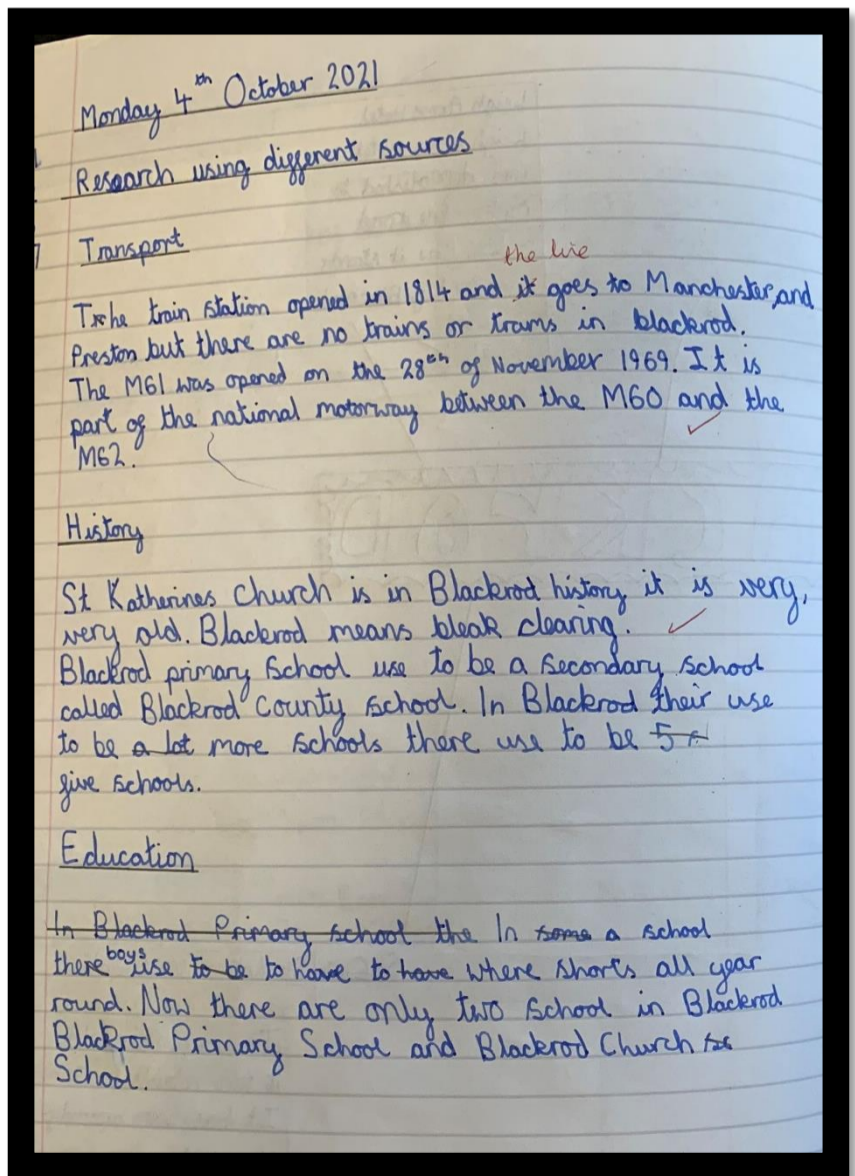 Monday 4th October 2021
Research using different sources
Transport
the line
The train station opened in 1814 and it goes to Manchester, and
Preston but there are no trains or trams in blackrod.
The M61 was opened on the 28th of November 1969. It is
part of the national motorway between the M60 and the
M62.
History
St Katherines Church is in Blackrod history it is very,
very old. Blackrod means bleak clearing.
Blackrod primary school use to be a secondary school
called Blackrod County school. In Blackrod their use
to be a lot more schools there use to be 5
five schools.
Education
In Blackrod Primary school the In some a school
there boys use to be to have to have where shorts all year
round. Now there are only two school in Blackrod
Blackrod Primary School and Blackrod Church
School.